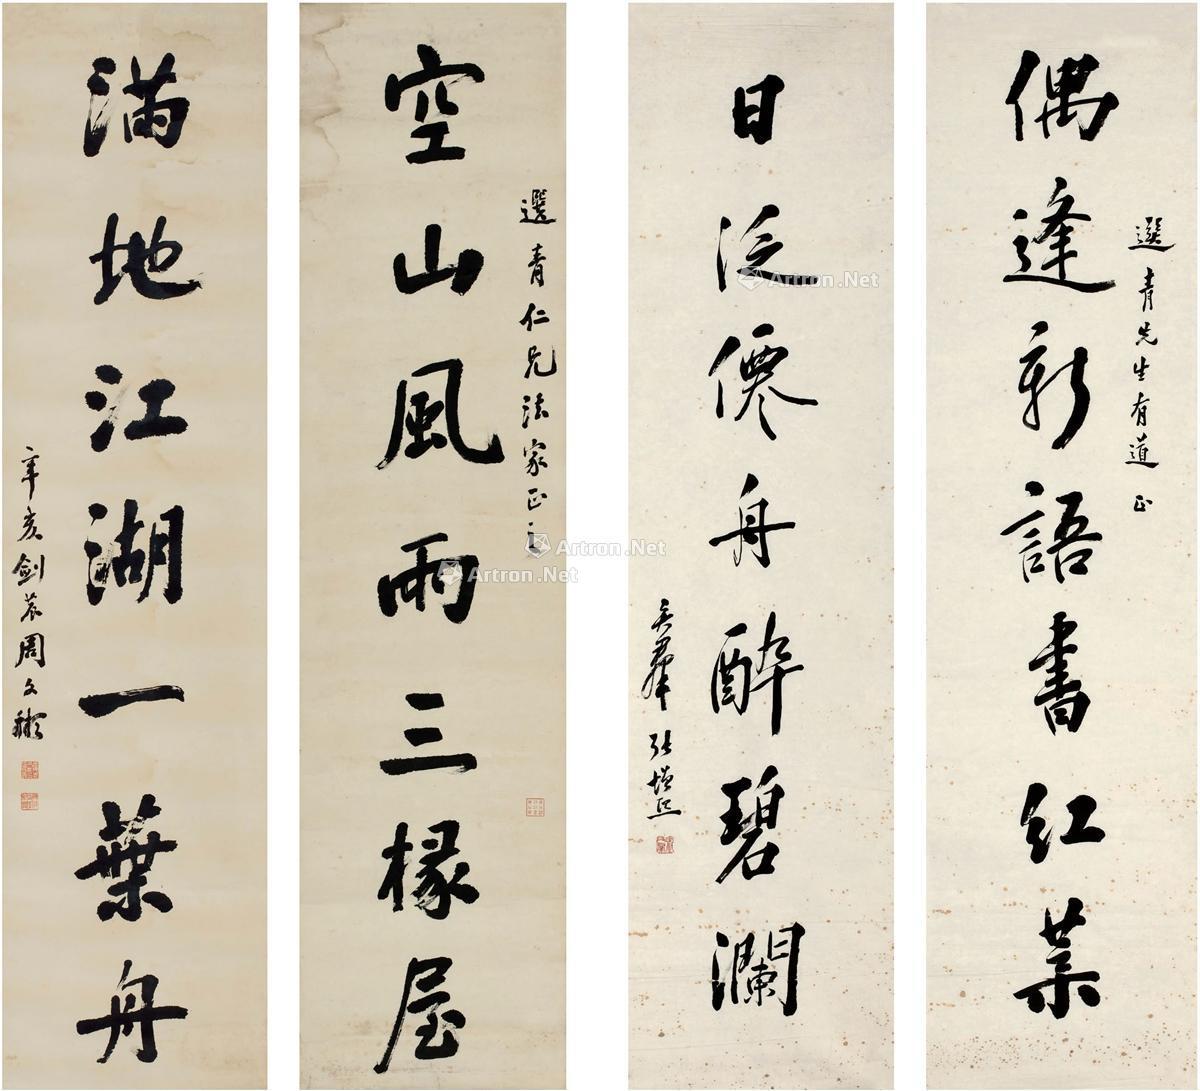 選青先生有道正
偶逢新語書紅葉
日泛僊舟醉碧瀾
張增熙
選青仁兄法家正之
空山風雨三椽屋
滿地江湖一葉舟
辛亥劍農周文
Artron.Net
Artron.Net
Artron.Net
Artron.Net